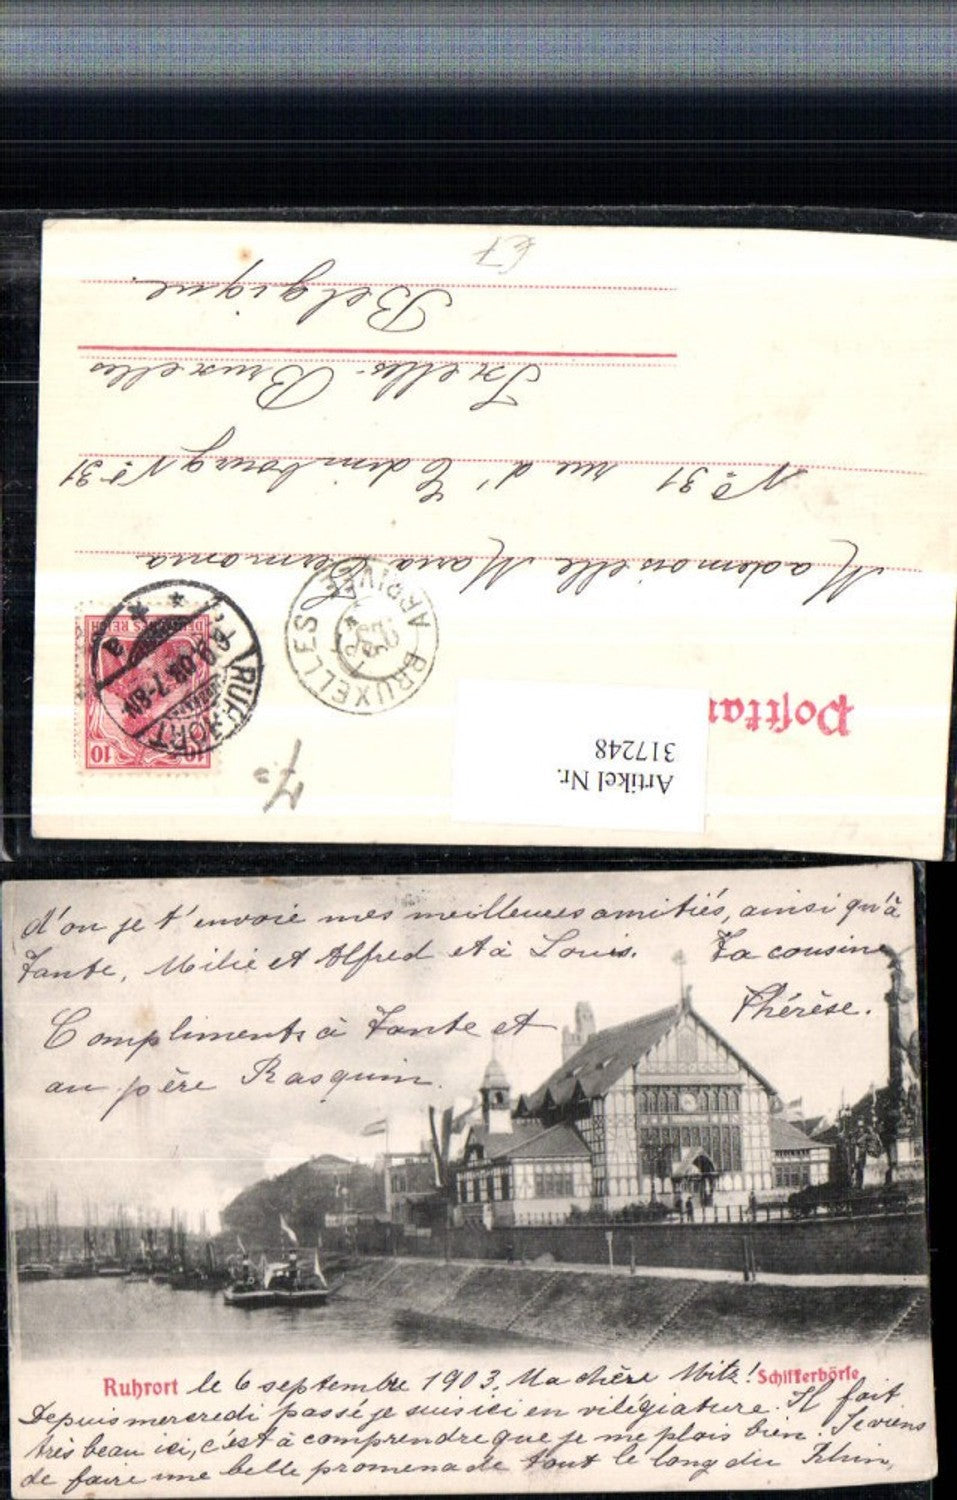 67
Belgique.
Ixelles-Bruxelles
No 31 rue d'Edimbourg No 31
Mademoiselle Maria Germonia
BRUXELLES
ARRIVÉE
DEUTSCHES REICH
10 10
RUHRORT
6.9.03.7-8N
a
Postkar
Artikel Nr.
317248
d'ou je t'envoie mes meilleures amitiés, ainsi qu'à
Tante, Milie et Alfred et à Louis. Ta cousine
Thérèse.
Compliments à Tante et
au père Rasquin.
Ruhrort le 6 septembre 1903. Ma chère Mitz! Schifferbörse
Depuis mercredi passé je suis ici en vilégiature. Il fait
très beau ici, c'est à comprendre que je me plois bien. Je viens
de faire une belle promenade tout le long du Rhin,